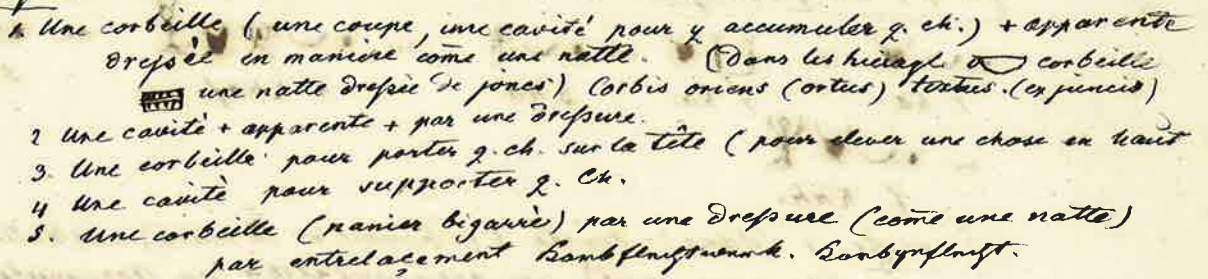 1. Une corbeille (une coupe, une cavité pour y accumuler q. ch.) + apparente
drepsée en maniere come une natte. (Dans les hieragl corbeille
une natte drepsée de joncs) Corbis oriens (ortus) textus. (ex juncis)
2 Une cavité + apparente + par une drepsure.
3. Une corbeille pour porter q. ch. sur la tête (pour elever une chose en haut
4 Une cavité pour supporter q. Ch.
5. Une corbeille (panier bigarré) par une drepsure (come une natte)
par entrelaçement